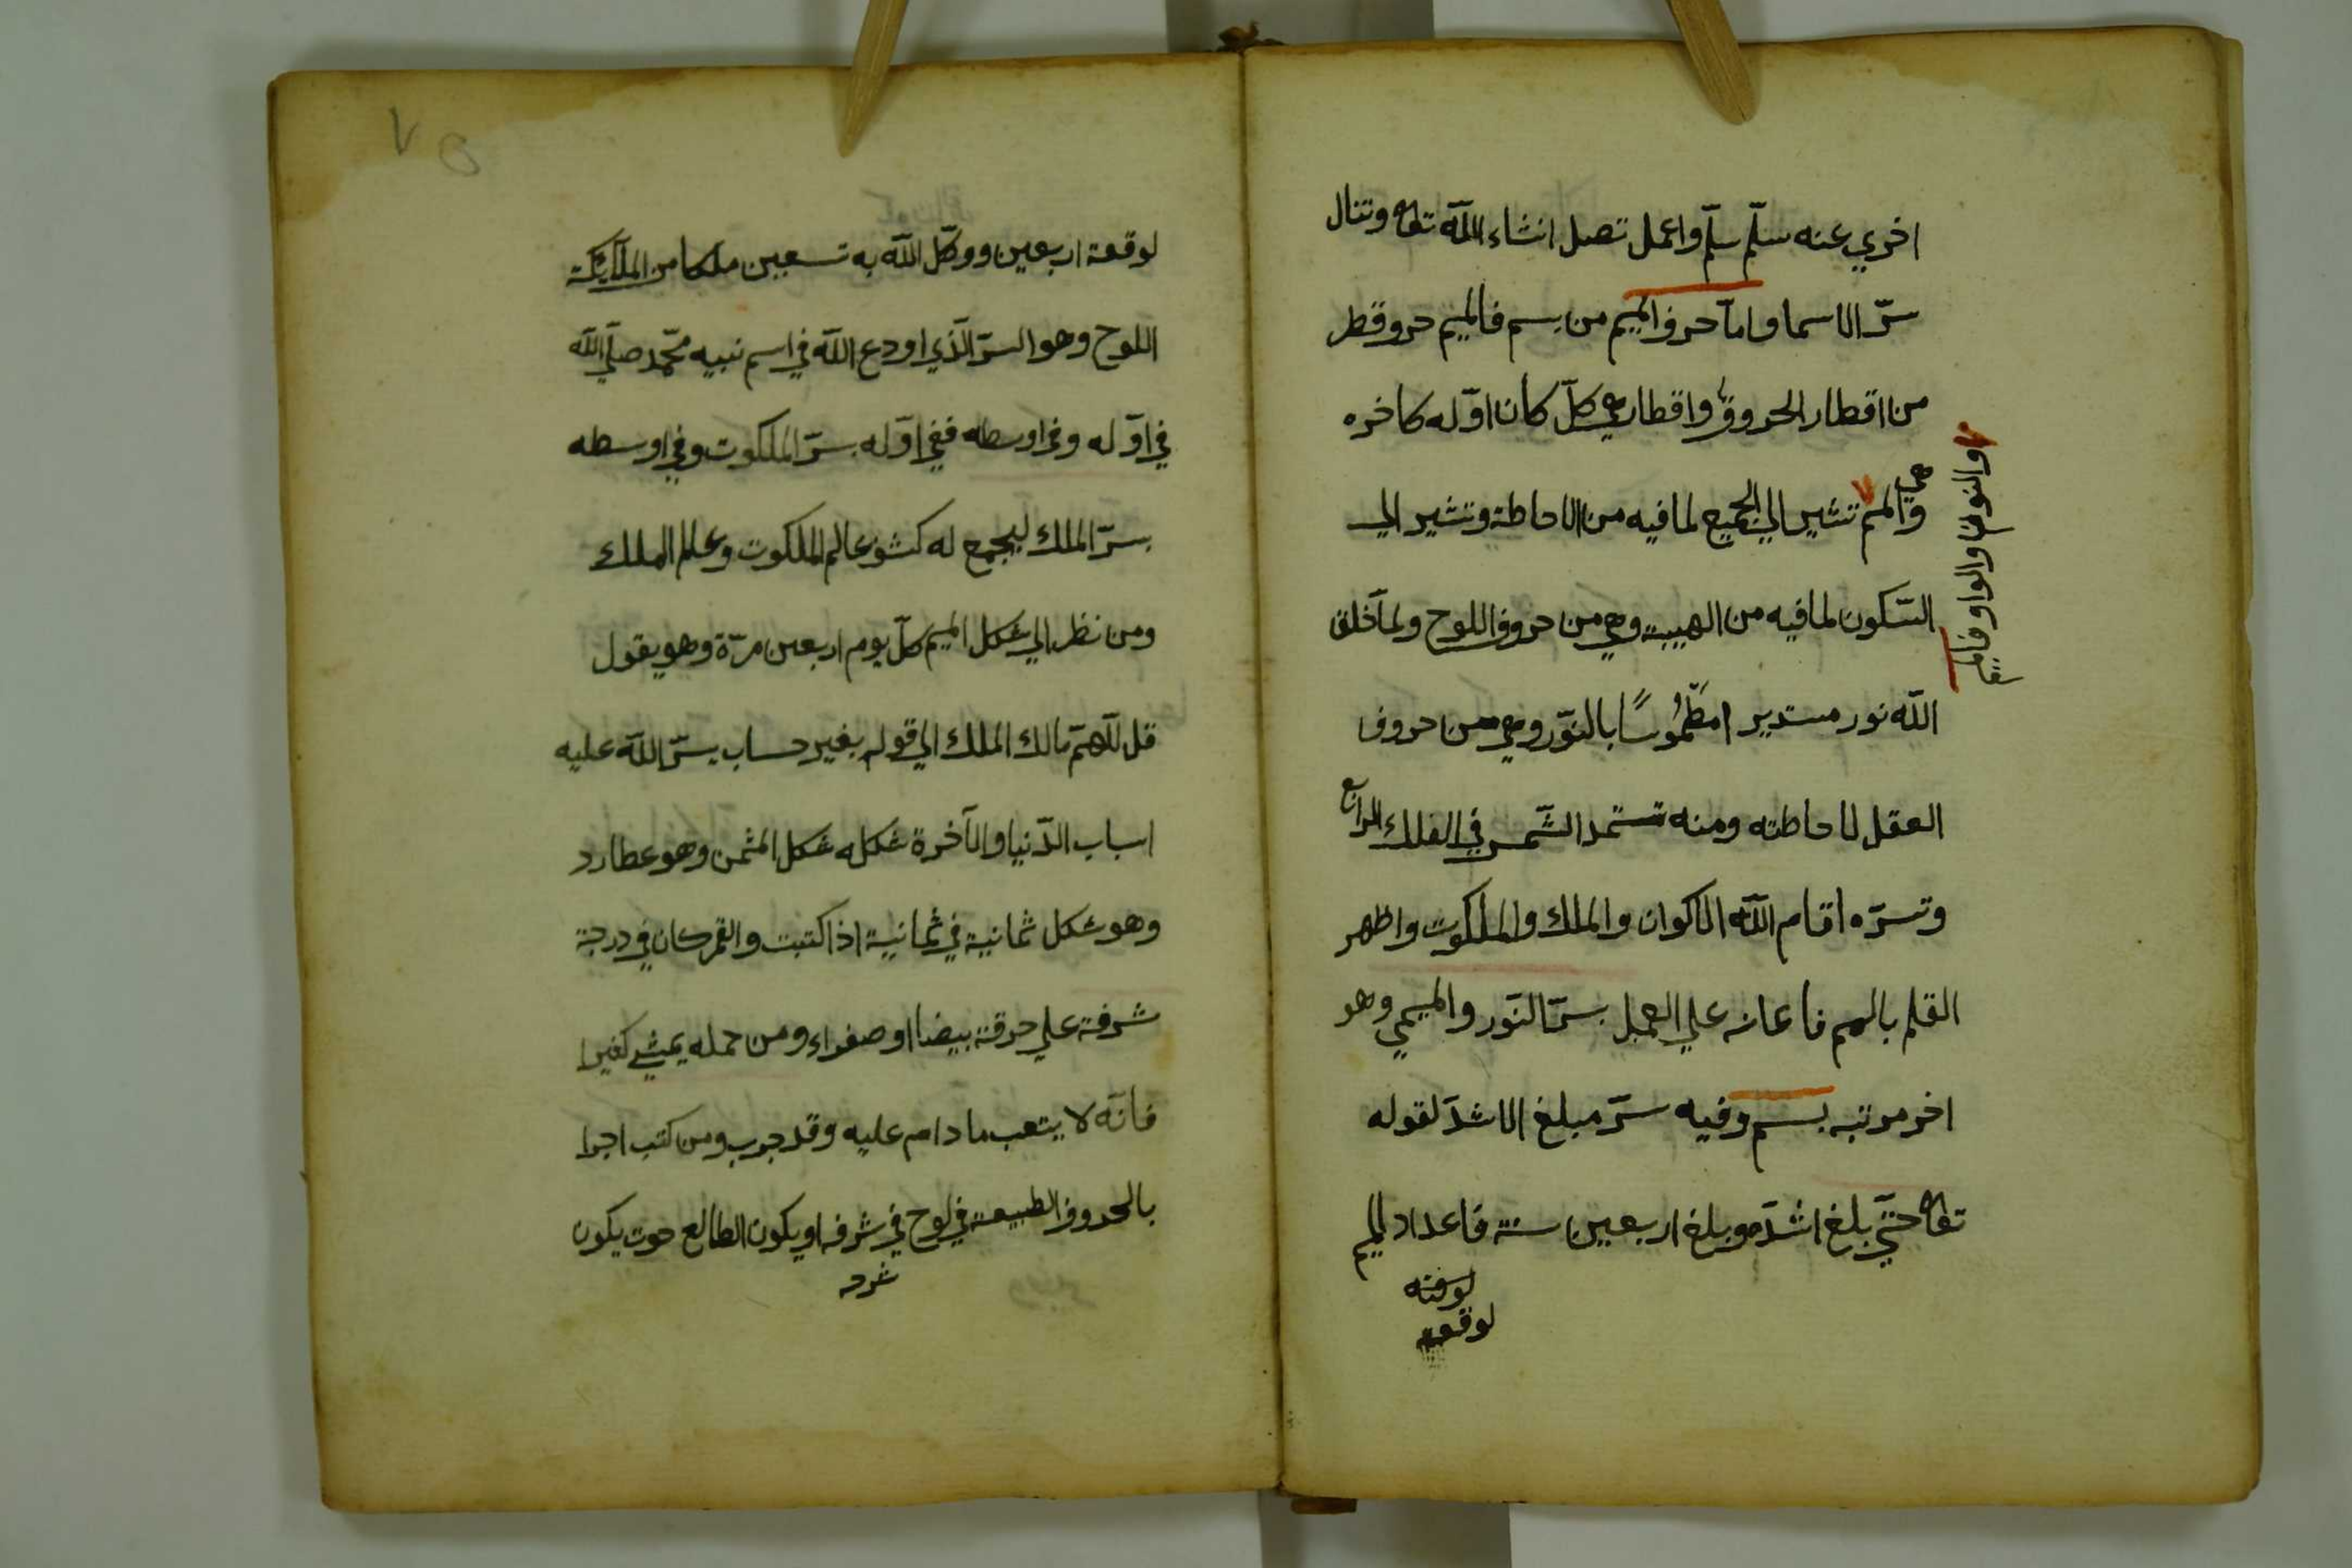 اخري عنه سلّم سلّم واعمل تصل انشاء اللّه تعا وتنال
سرّ الاسما واما حروف الميم من بسم فالميم حروقطر
من اقطار الحروف واقطار هي كلّ كان اوّله كاخره
وهي الميم تشير الي الجميع لما فيه من الاحاطة وتشير الي
والنون والواو فاما
السّكون لما فيه من الهيبة وهي من حروف اللوح ولمآ خلق
اللّه نور مستدير امطّموسًا بالنّور وهي من حروف
العقل لاحاطته ومنه تستمد الشّمس في الفلك الرابع
وتسرّه اقام اللّه الاكوان والملك والملكوت واظهر
القلم بالميم فاعانه علي العمل بسرّ النّور والميمي وهو
اخر مرتبه بسم وفيه سرّ مبلغ الاشدّ لقوله
تعا حتّي بلغ اشدّه وبلغ اربعين سنة فاعداد الميم
لوقته
لوقعة
لوقعة اربعين ووكّل اللّه به تسعين ملكا من الملآيكة
اللوح وهو السرّ الّذي اودع اللّه في اسم نبيه محّمد صلّي اللّه
في اوّله وفي اوسطه ففي اوّله سرّ الملكوت وفي اوسطه
سرّ الملك ليجمع له كشف عالم الملكوت وعالم الملك
ومن نظر الي شكل الميم كلّ يوم اربعين مرّة وهو يقول
قل للّهمّ مالك الملك الي قوله بغير حساب يسّر اللّه عليه
اسباب الدّنيا والآخرة شكله شكل المثمن وهو عطارد
وهو شكل ثمانية في ثمانية اذا كتبت والقمر كان في درجة
شرفة علي حرقة بيضا او صفراء ومن حمله يمشي كفيرا
فانّه لا يتعب ما دام عليه وقد جرب ومن كتب اجرا
بالحروف الطبيعة في لوح في شرفه او يكون الطالع حوت يكون
شرد